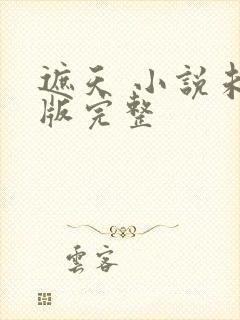 遮天 小說未
版完整
雲客